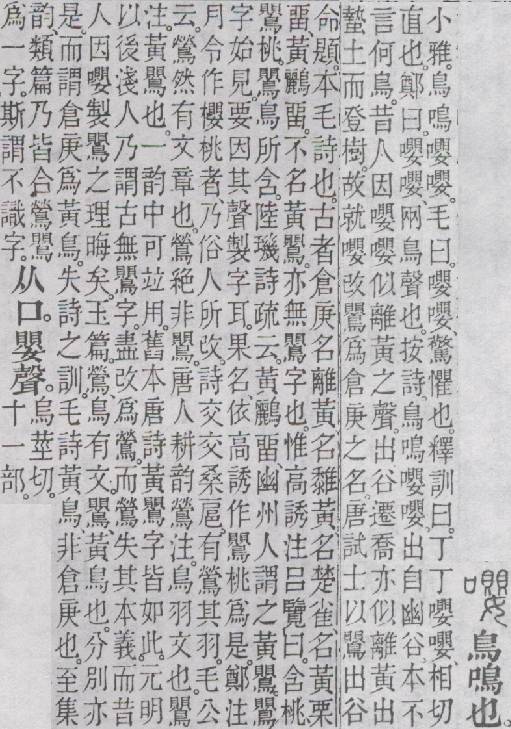 嚶 鳥鳴也。
小雅。鳥鳴嚶嚶。毛曰。嚶嚶、驚懼也。釋訓曰。丁丁嚶嚶、相切
直也。鄭曰。嚶嚶、网鳥聲也。按詩。鳥鳴嚶嚶、出自幽谷。本不
言何鳥。昔人因嚶嚶似離黃之聲。出谷遷喬亦似離黃出
蟄土而登樹。故就嚶改鸎爲倉庚之名。唐試士以鸎出谷
命題。本毛詩也。古者倉庚名離黃。名黧黃。名楚雀。名黃栗
畱。黃鸝畱。不名黃鸎。亦無鸎字也。惟高誘注呂覽曰。含桃、
鸎桃。鸎鳥所含。陸璣詩疏云。黃鸝畱、幽州人謂之黃鸎。鸎
字始見。要因其聲製字耳。果名、依高誘作鸎桃爲是。鄭注
月令作櫻桃者、乃俗人所改。詩交交桑扈。有鶯其羽。毛公
云。鶯然有文章也。鶯絕非鸎。唐人耕韵鶯注。鳥羽文也。鸎
注。黃鸎也。一韵中可竝用。舊本唐詩黃鸎字皆如此。元明
以後淺人乃謂古無鸎字。盡改爲鶯。而鶯失其本義。而昔
人因嚶製鸎之理晦矣。玉篇鶯、鳥有文。鸎、黃鳥也。分別亦
是。而謂倉庚爲黃鳥。失詩之訓。毛詩黃鳥、非倉庚也。至集
韵、類篇乃皆合鶯鸎
爲一字。斯謂不識字。从口。嬰聲。烏莖切。十一部。